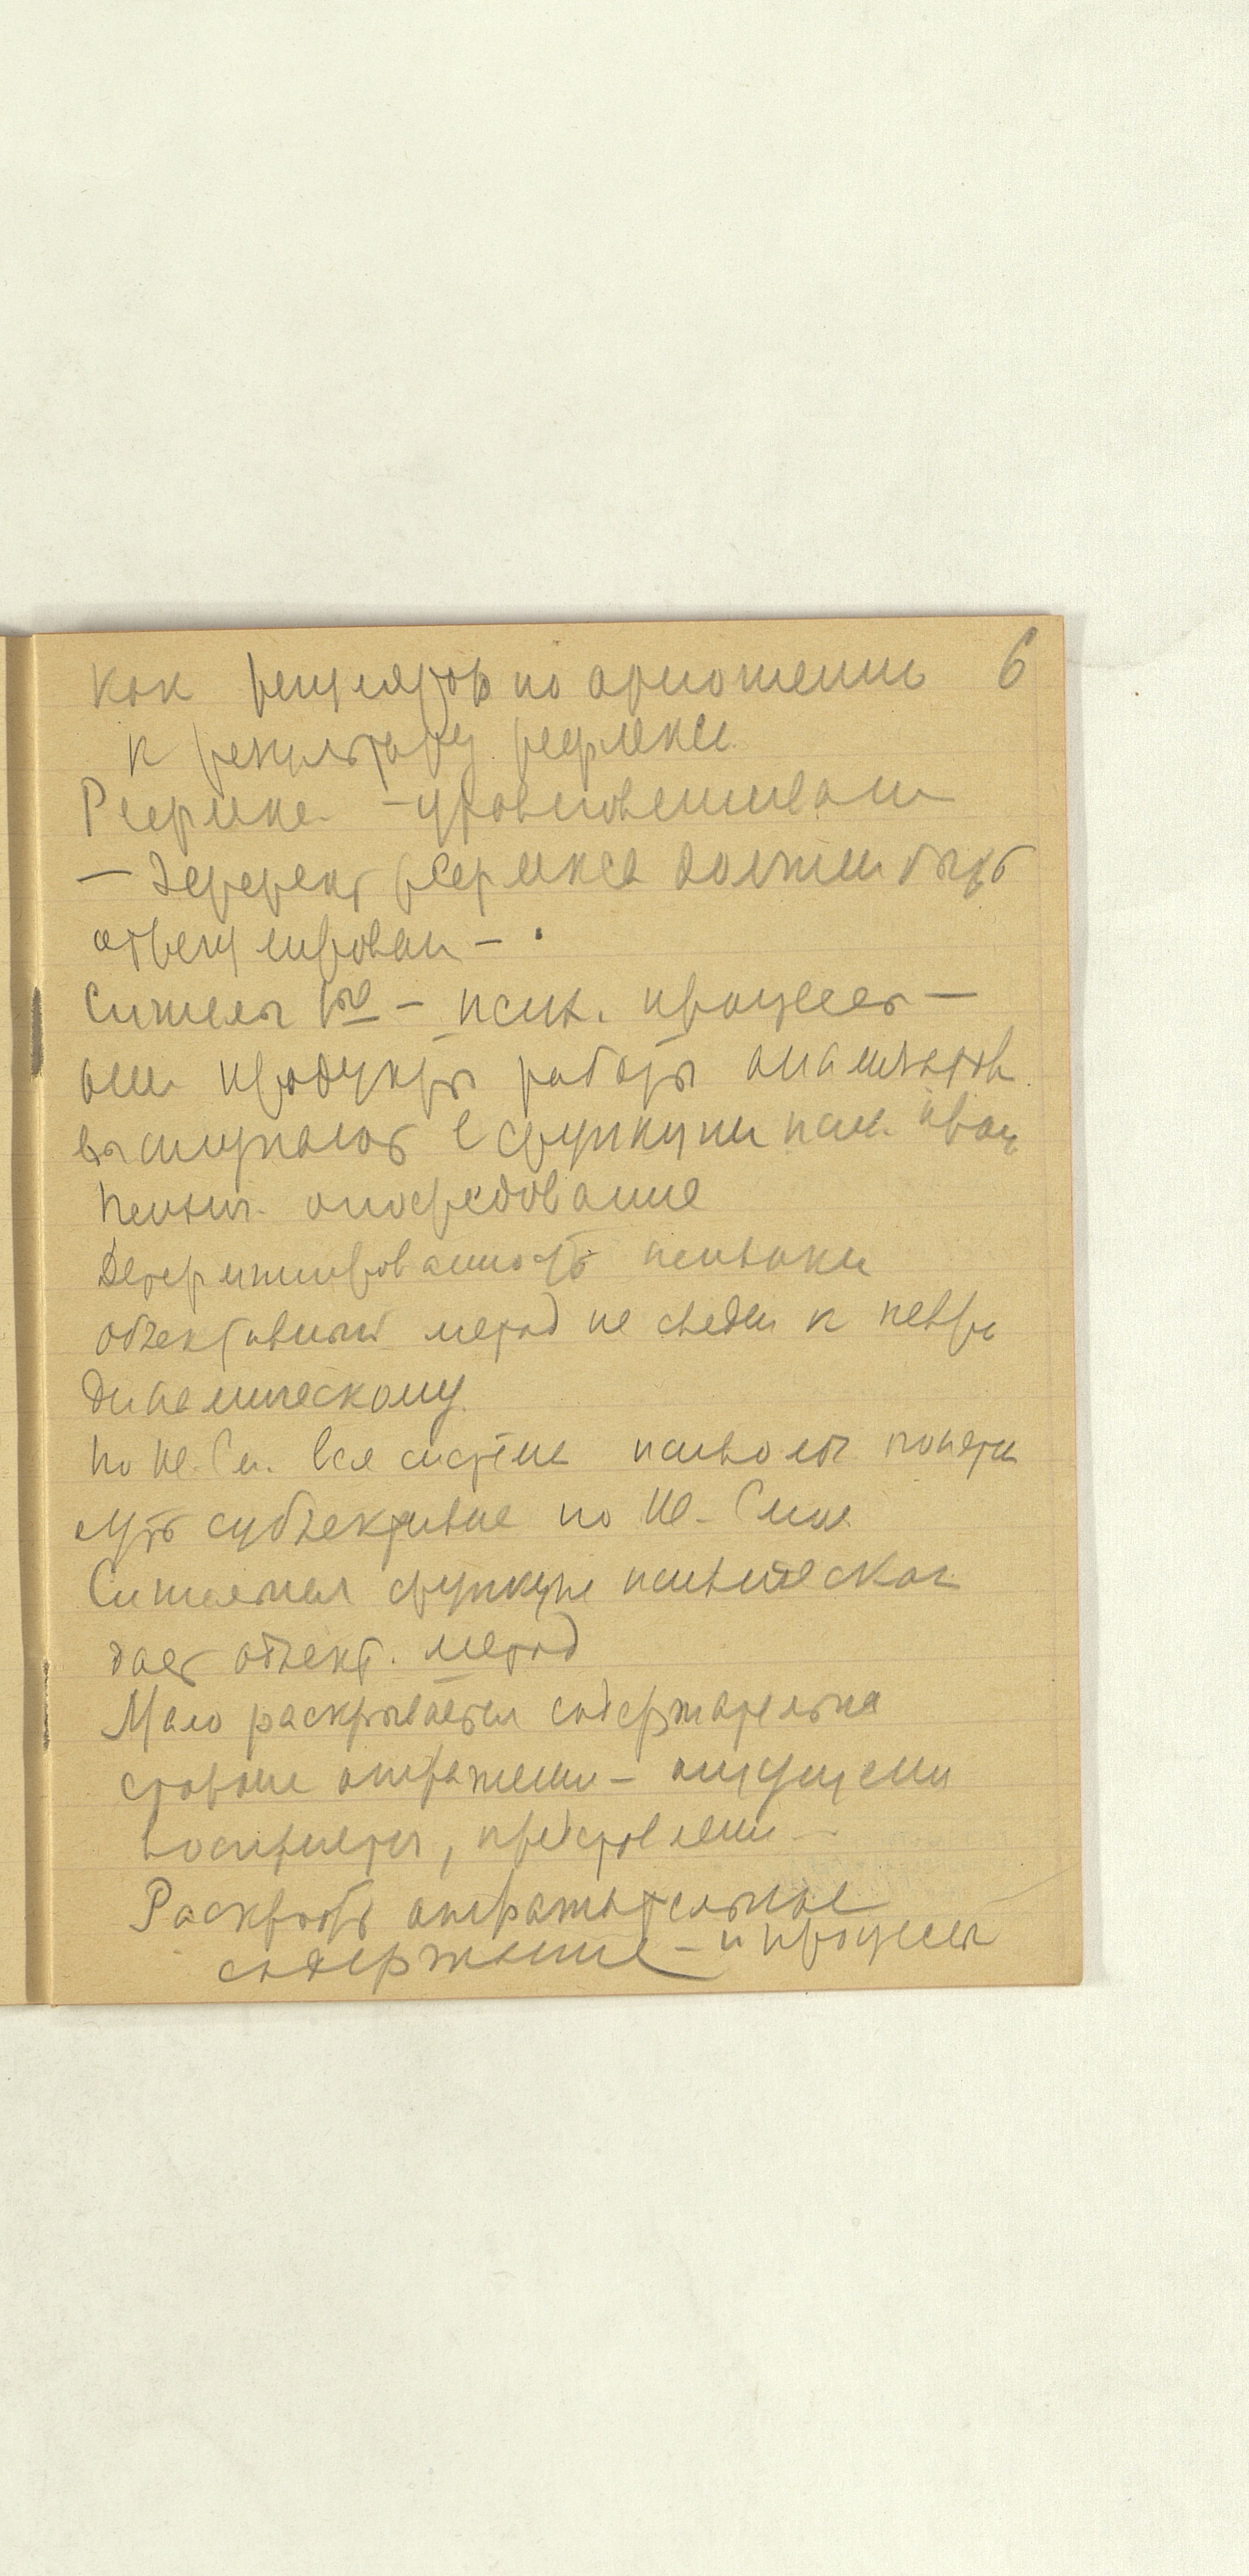 как регулятор по отношению 6
к результату рефлекса.
Рефлекс - уравновешивание
— эффект рефлекса должен быть
отрегулирован — .
Сигналы I<u>ые</u> — псих. процессы —
они продукты работы анализатов.
выступают в функции псих. проц
психич. опосредование
Детерминированность психики
объективный метод не сведен к нейро
динамическому.
по Ив. См. вся система психолог. поняти
суть субъективные по Ив. Смол.
Сигнальная функция психическая
дает объект. метод
Мало раскрывается содержательна
сторона отражения — ощущения
восприятия, представления —
Раскрыть отражательное
содержание — и процессы